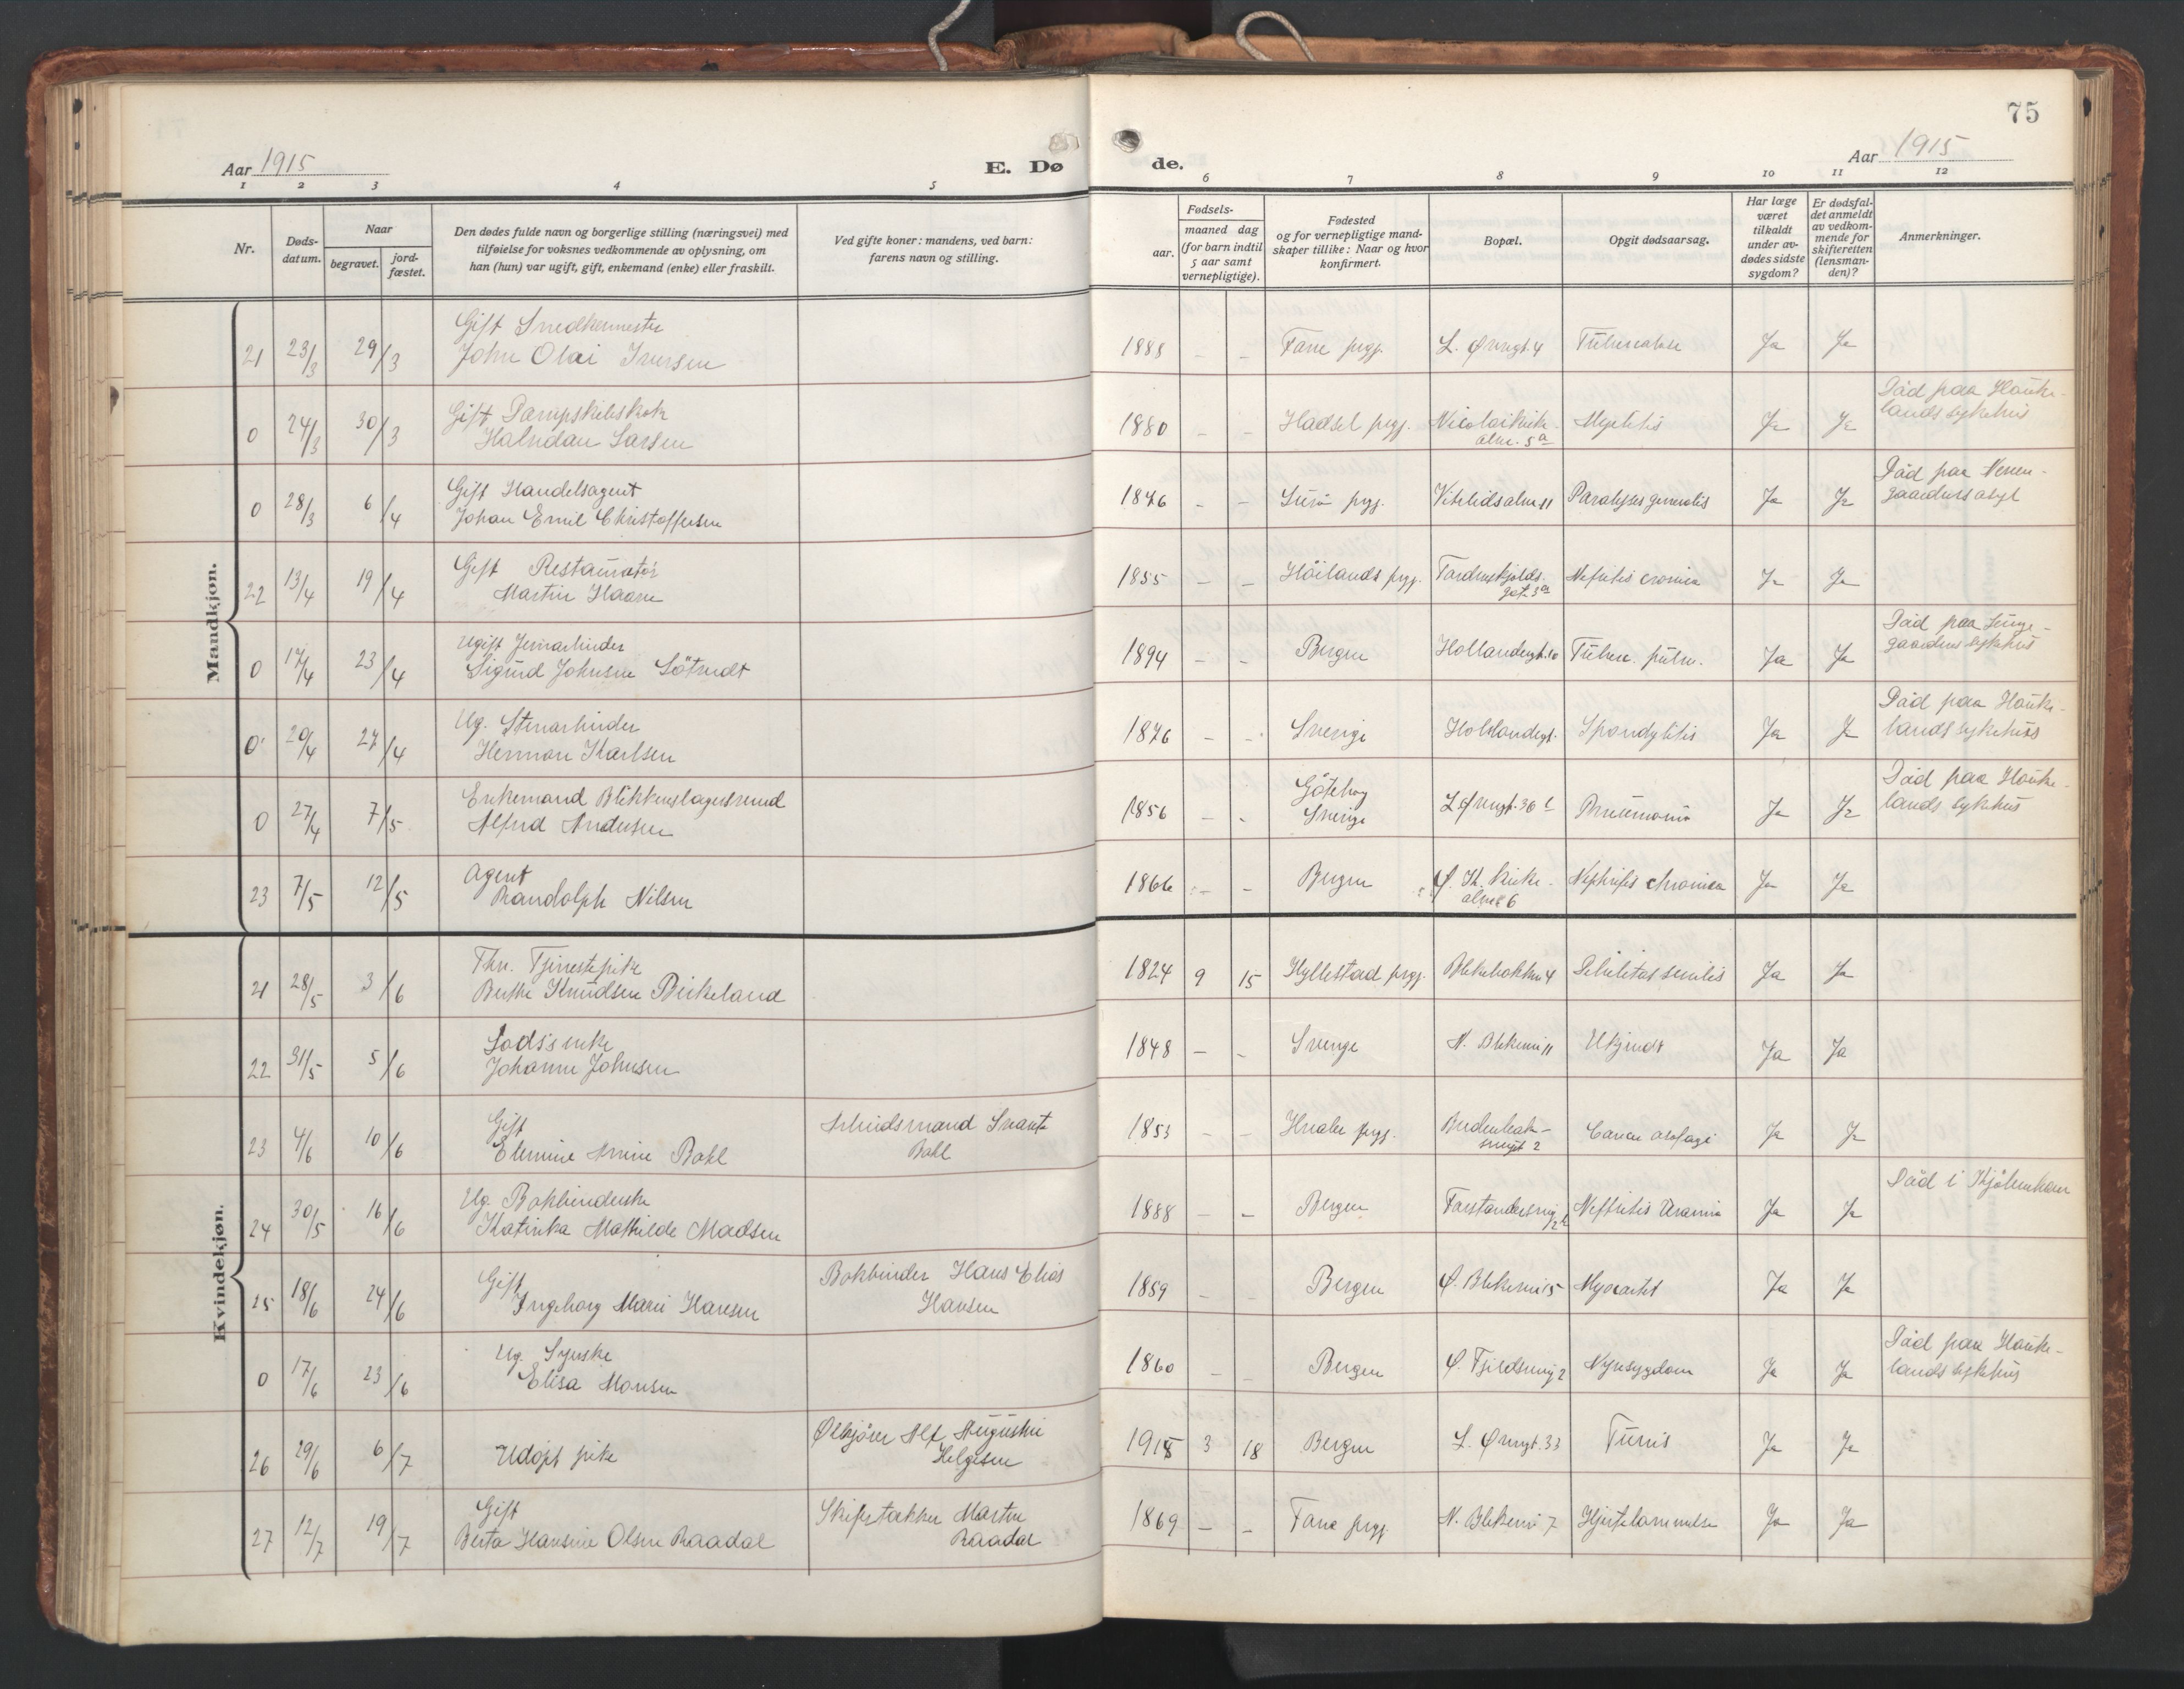 75
Aar 1915
E. Dø
de.
Aar 1915
1 2 3 4 5 6 7 8 9 10 11 12
Nr.
Døds-
datum.
Naar
begravet.
jord-
fæstet.
Den dødes fulde navn og borgerlige stilling (næringsvei) med
tilføielse for voksnes vedkommende av oplysning, om
han (hun) var ugift, gift, enkemand (enke) eller fraskilt.
Ved gifte koner: mandens, ved barn:
farens navn og stilling.
Fødsels-
aar.
maaned dag
(for barn indtil
5 aar samt
vernepligtige).
Fødested
og for vernepligtige mand-
skaper tillike: Naar og hvor
konfirmert.
Bopæl.
Opgit dødsaarsag.
Har læge
været
tilkaldt
under av-
dødes sidste
sygdom?
Er dødsfal-
det anmeldt
av vedkom-
mende for
skifteretten
(lensman-
den)?
Anmerkninger.
Mandkjøn.
Gift Snedkermester
21 23/3 29/3 John Olai Iversen 1888 - - Fane prgj. L. Øvregt. 4 Ja Ja
Gift Dampskibskok
0 24/3 30/3 Halvdan Larsen 1880 - - Hadsel prgj. Nicolaikirke-
alm. 5a Myelitis Ja Ja
Död paa Hauke-
lands sykehus
Gift Handelsagent
0 28/3 6/4 Johan Emil Christoffersen 1876 - - prgj. Vitelidsalm 11 Paralyses generalis Ja Ja
Död paa Neven-
gaardens asyl
Gift Restauratör
22 13/4 19/4 Martin Haave 1855 - - Höilands prgj. Tordenskjolds-
gat. 3a Nefritis cronica Ja Ja
Ugift Jernarbeider
0 17/4 23/4 Sigurd Johnsen 1894 - - Bergen Hollendergt. 10 Tuberc. pulm. Ja Ja
Död paa Lunge-
gaardens sykehus
Ug. Stenarbeider
0 20/4 27/4 Herman Karlsen 1876 - - Sverige Hollendergt. Spondylitis Ja Ja
Död paa Hauke-
lands sykehus
Enkemand Blikkenslagersvend
0 27/4 7/5 Alfred Andersen 1856 - - Göteborg
Sverige L. Øvregt. 36 Pneumonia Ja Ja
Död paa Hauke-
lands sykehus
Agent
23 7/5 12/5 Randolph Nilsen 1866 - - Bergen Ø. Kr. Kirke-
alm. 6 Nephritis chronica Ja Ja
Kvindekjøn.
Fhv. Tjenestepike
21 28/5 3/6 Berthe Knudsen Birkeland 1824 9 15 Hyllestad prgj. Blekebakken 4 Debilitas senilis Ja Ja
Lodsenke
22 31/5 5/6 Johanne Johnsen 1848 - - Sverige N. Blekevei 11 Ukjendt Ja Ja
Gift
23 4/6 10/6 Elemine Anine Bohl Arbeidsmand Svante
Bohl 1853 - - Hvaler prgj. Cancer øsofagi Ja Ja
Ug. Bokbinderske
24 30/5 16/6 Katinka Mathilde Madsen 1888 - - Bergen Forstandersmug Nefritis Uræmia Ja Ja
Död i Kjöbenhavn
Gift
25 18/6 24/6 Ingeborg Marie Hansen Bokbinder Hans Elias
Hansen 1859 - - Bergen Ø. Blekevei 15 Ja Ja
Ug. Syerske
0 17/6 23/6 Elisa Monsen 1860 - - Bergen Ø. Fjeldsmug 2 Nyresygdom Ja Ja
Död paa Hauke-
lands sykehus
26 29/6 6/7 Udöpt pike Ølkjörer Alf Augustin
Helgesen 1915 3 18 Bergen L. Øvregt. 33 Ja Ja
Gift
27 12/7 19/7 Berta Hansine Olsen Raadal Skibstakker Martin
Raadal 1869 - - Fane prgj. N. Blekevei 7 Hjertelammelse Ja Ja